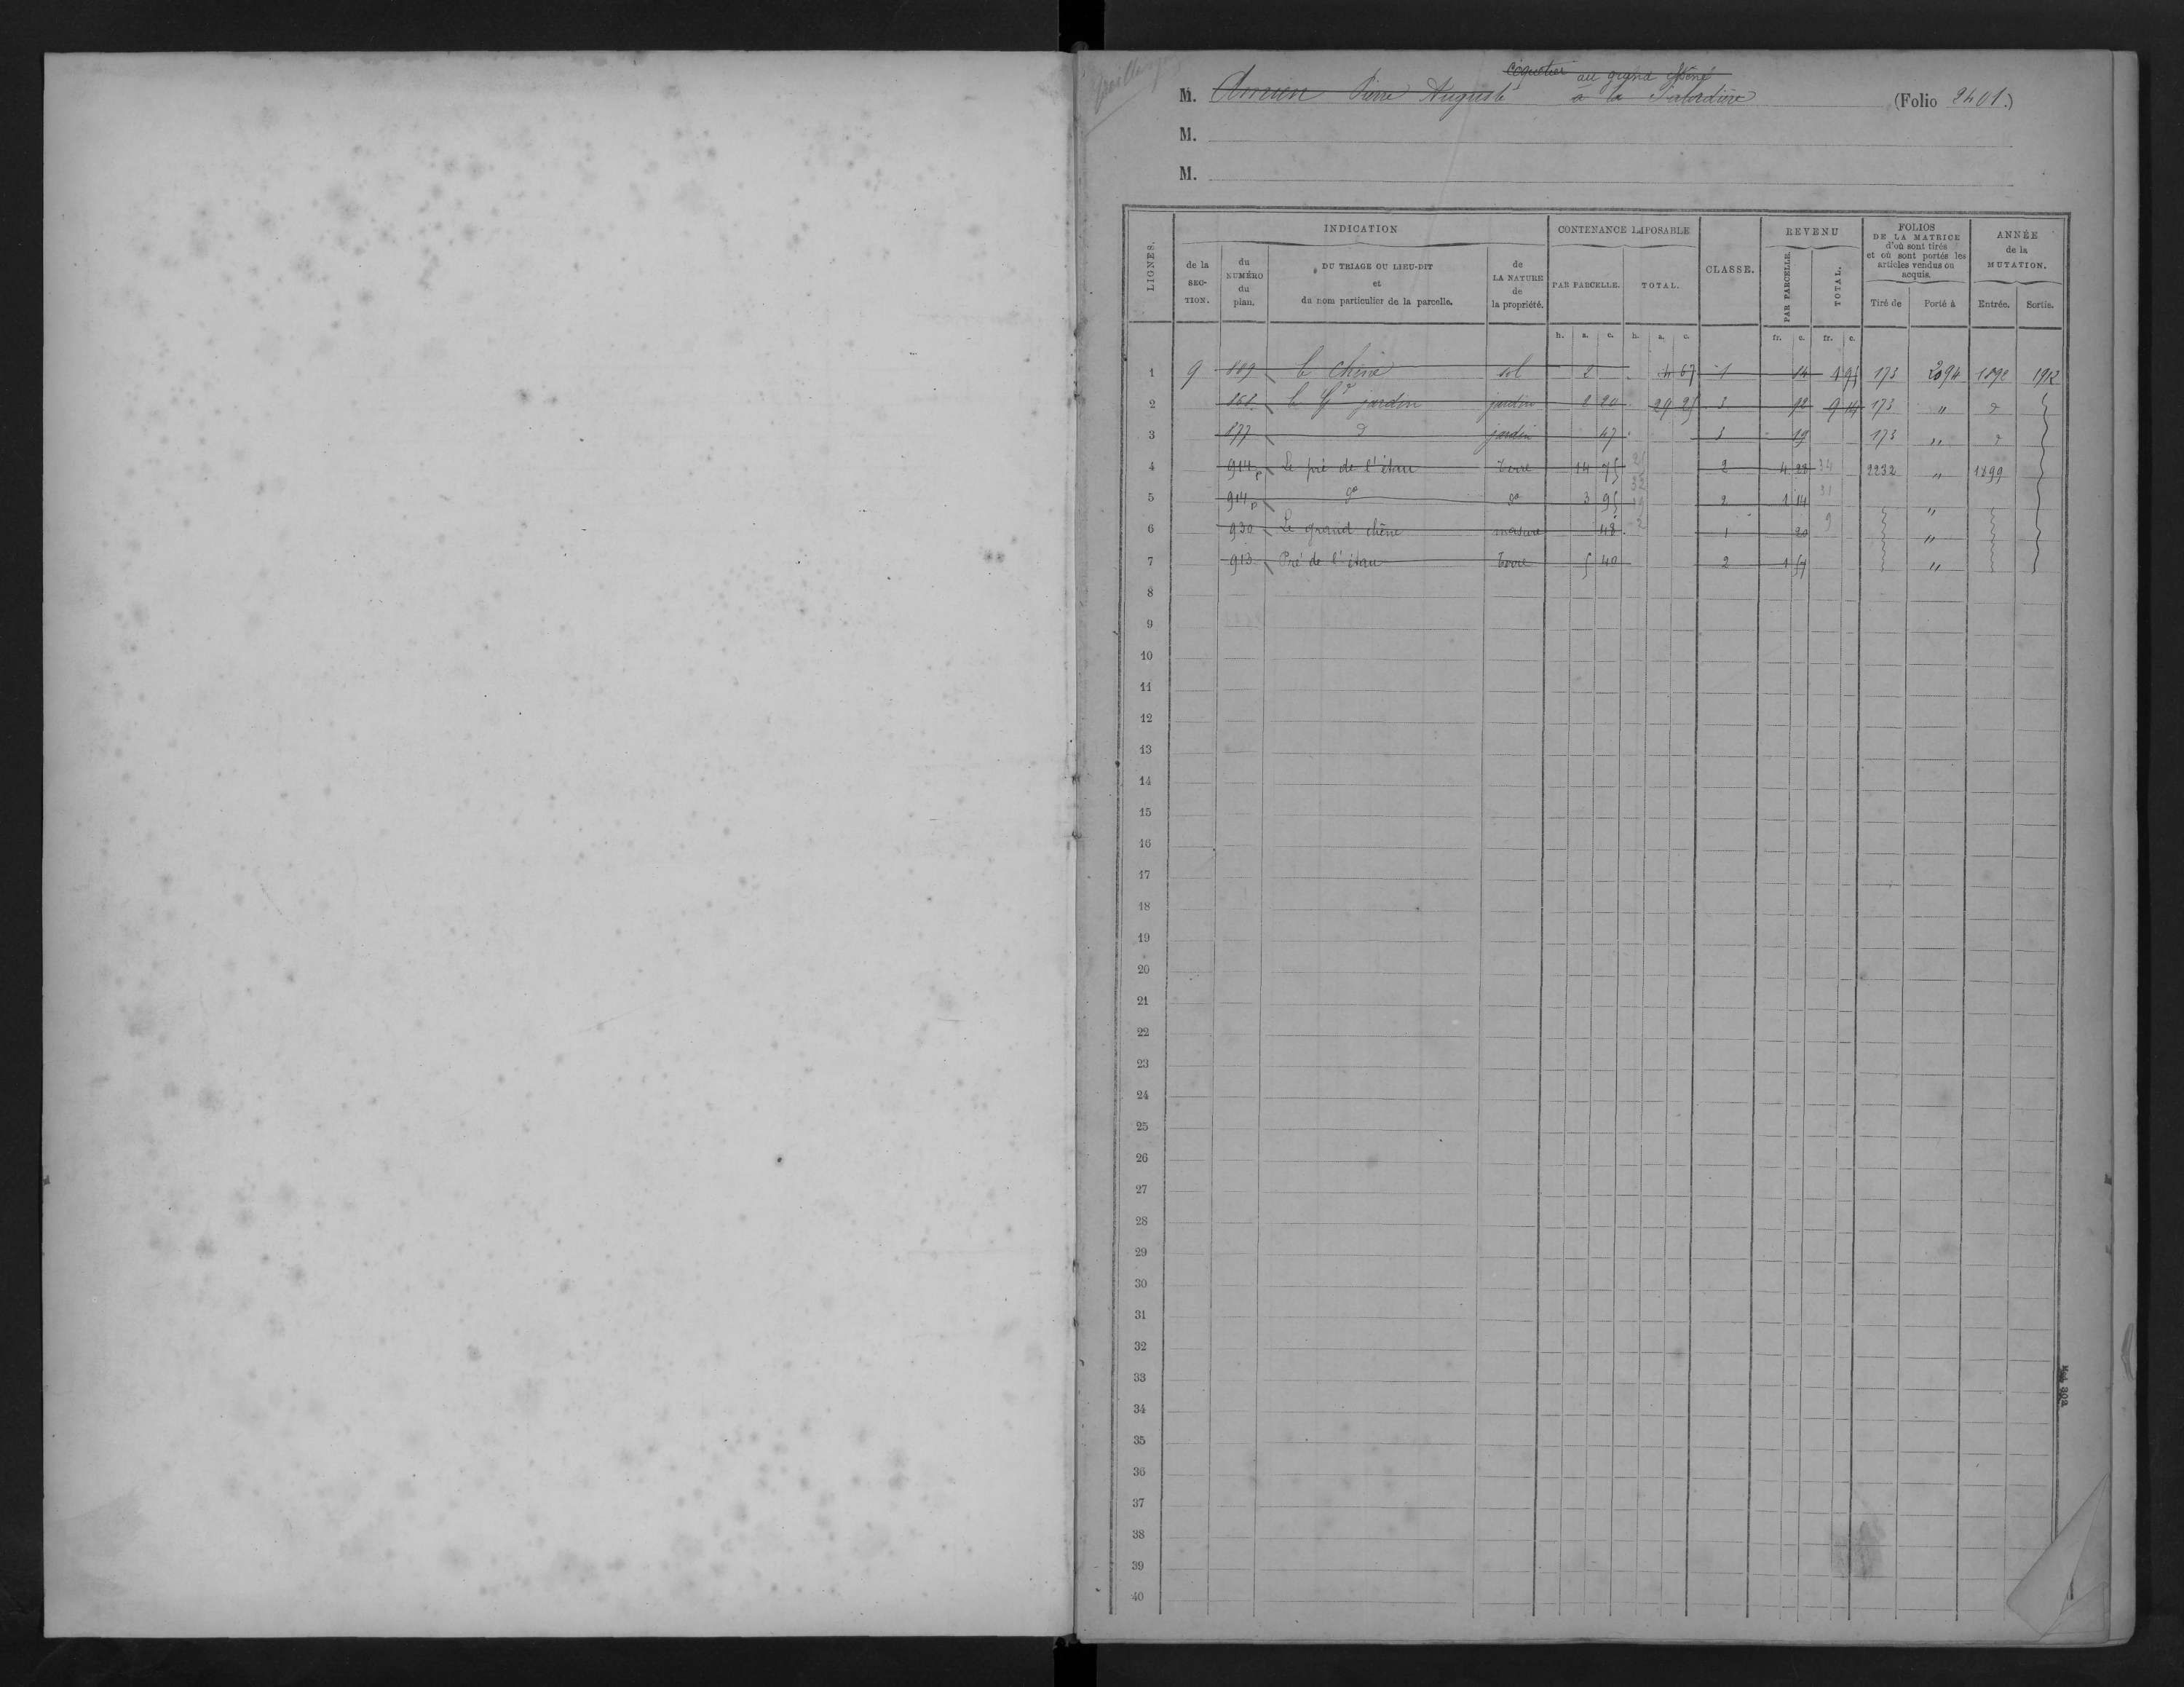 Coquetier au grand Chêne
M. Pierre Auguste à la (Folio 2401.)
M.
M.
LIGNES.
INDICATION
CONTENANCE IMPOSABLE
CLASSE.
REVENU
FOLIOS DE LA MATRICE d'où sont tirés et où sont portés les articles vendus ou acquis.
ANNÉE de la MUTATION.
de la SECTION.
du NUMÉRO du plan.
DU TRIAGE OU LIEU-DIT et du nom particulier de la parcelle.
de LA NATURE de la propriété.
PAR PARCELLE.
TOTAL.
PAR PARCELLE.
TOTAL.
Tiré de
Porté à
Entrée.
Sortie.
h. a. c. h. a. c. fr. c. fr. c.
1 9 889 le chêne sol 2 4 67 1 14 1 95 173 2094 1898 1912
2 868 le Gd jardin jardin 2 20 29 25 3 92 9 14 173 " d
3 877 d jardin 47 3 19 173 " d
4 914 p Le pré de l'étau terre 14 75 2 4 28 34 2232 " 1899
5 914 p do do 3 95 2 1 14 31 "
6 930 Le grand chêne masure 48 1 20 9 "
7 913 Pré de l'étau terre 5 40 2 1 57 "
8
9
10
11
12
13
14
15
16
17
18
19
20
21
22
23
24
25
26
27
28
29
30
31
32
33
34
35
36
37
38
39
40